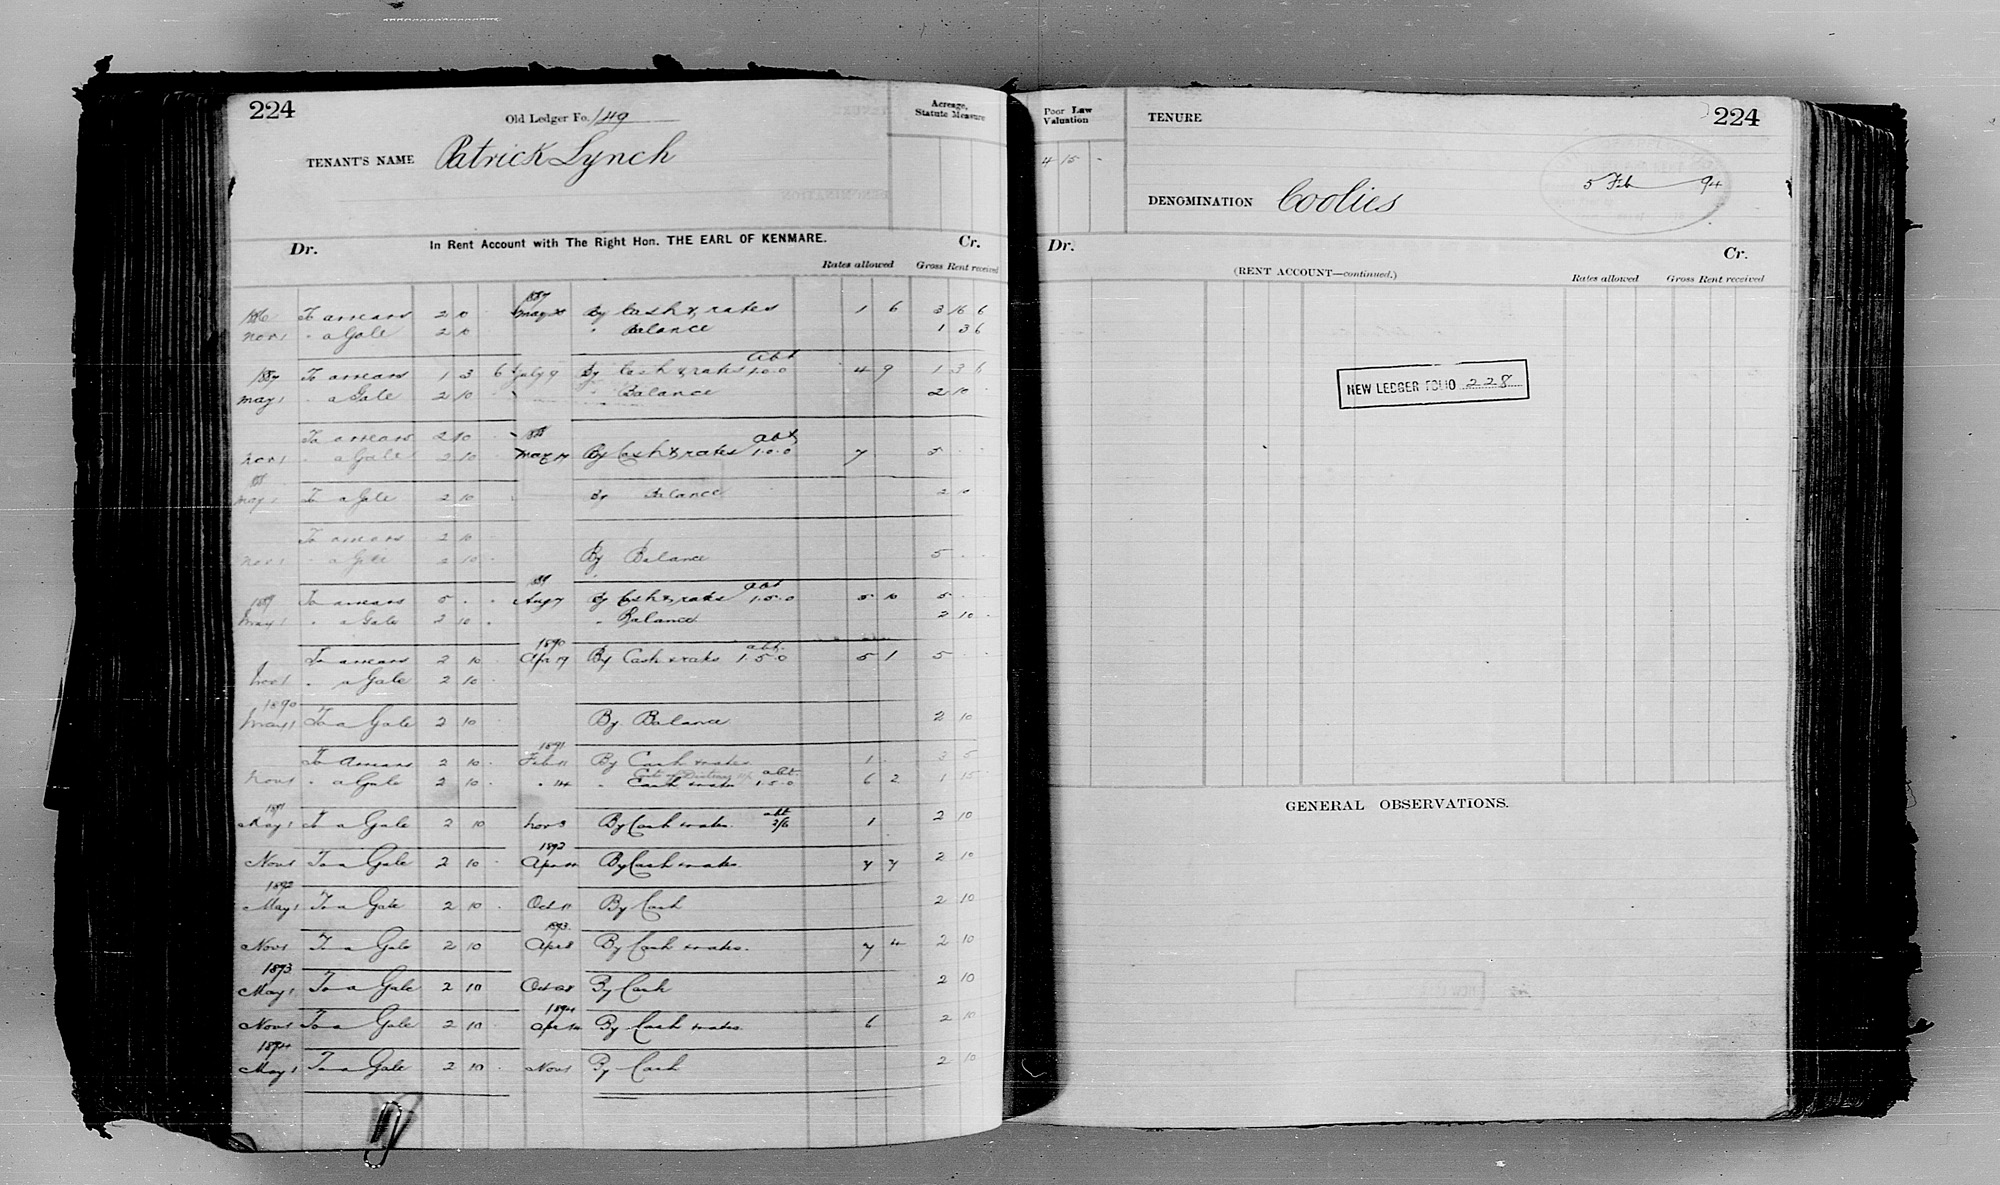 224
Old Ledger Fo. 149
Acreage, Statute Measure
TENANT'S NAME Patrick Lynch
Dr. In Rent Account with The Right Hon. THE EARL OF KENMARE. Cr.
Rates allowed Gross Rent received
1887
1886 To arrears 2 10 May By Cash & rates 1 6 3 16 6
Nov 1 " a Gale 2 10 " Balance 1 3 6
abt
1887 To arrears 1 3 6 July 9 By Cash & rates 1.0.0 4 9 1 3 6
May 1 " a Gale 2 10 " Balance 2 10
To arrears 2 10 1888 abt
Nov 1 " a Gale 2 10 May 17 By Cash & rates 1.0.0 7 5
1888
May 1 To a Gale 2 10 By Balance 2 10
To arrears 2 10
Nov 1 " a Gale 2 10 By Balance 5
1889 abt
1889 To arrears 5 Aug 7 By Cash & rates 1.5.0 5 10 5
May 1 " a Gale 2 10 " Balance 2 10
1890 abt.
To arrears 2 10 Apr 19 By Cash & rates 1.5.0 5 1 5
Nov 1 " a Gale 2 10
1890
May 1 To a Gale 2 10 By Balance 2 10
1891
To arrears 2 10 Feb 11 By Cash & rates 1 3 5
abt.
Nov 1 " a Gale 2 10 " 14 " Cash & rates 1.5.0 6 2 1 15
1891 abt
May 1 To a Gale 2 10 Nov 3 By Cash & rates. 2/6 1 2 10
1892
Nov 1 To a Gale 2 10 Apr By Cash & rates. 7 7 2 10
1892
May 1 To a Gale 2 10 Oct 11 By Cash 2 10
1893
Nov 1 To a Gale 2 10 Apr 8 By Cash & rates. 7 4 2 10
1893
May 1 To a Gale 2 10 Oct 28 By Cash 2 10
1894
Nov 1 To a Gale 2 10 Apr 14 By Cash & rates 6 2 10
1894
May 1 To a Gale 2 10 Nov 1 By Cash 2 10
Poor Law Valuation
4 15 -
TENURE
224
5 Feb 94
DENOMINATION Coolies
Dr. Cr.
(RENT ACCOUNT—continued.)
Rates allowed Gross Rent received
NEW LEDGER FOLIO 228
GENERAL OBSERVATIONS.